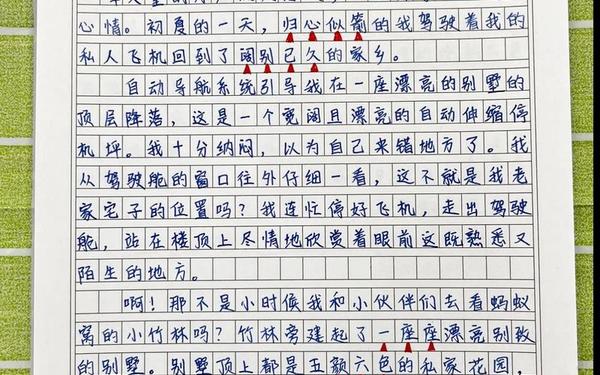 心情。初夏的一天，归心似箭的我驾驶着我的
私人飞机回到了阔别已久的家乡。
自动导航系统引导我在一座漂亮的别墅的
顶层降落，这是一个宽阔且漂亮的自动伸缩停
机坪。我十分纳闷，以为自己来错地方了。我
从驾驶舱的窗口往外仔细一看，这不就是我老
家宅子的位置吗？我连忙停好飞机，走出驾驶
舱，站在楼顶上尽情地欣赏着眼前这既熟悉又
陌生的地方。
啊！那不是小时候我和小伙伴们去看蚂蚁
窝的小竹林吗？竹林旁建起了一座座漂亮别致
的别墅。别墅顶上都是五颜六色的私家花园，